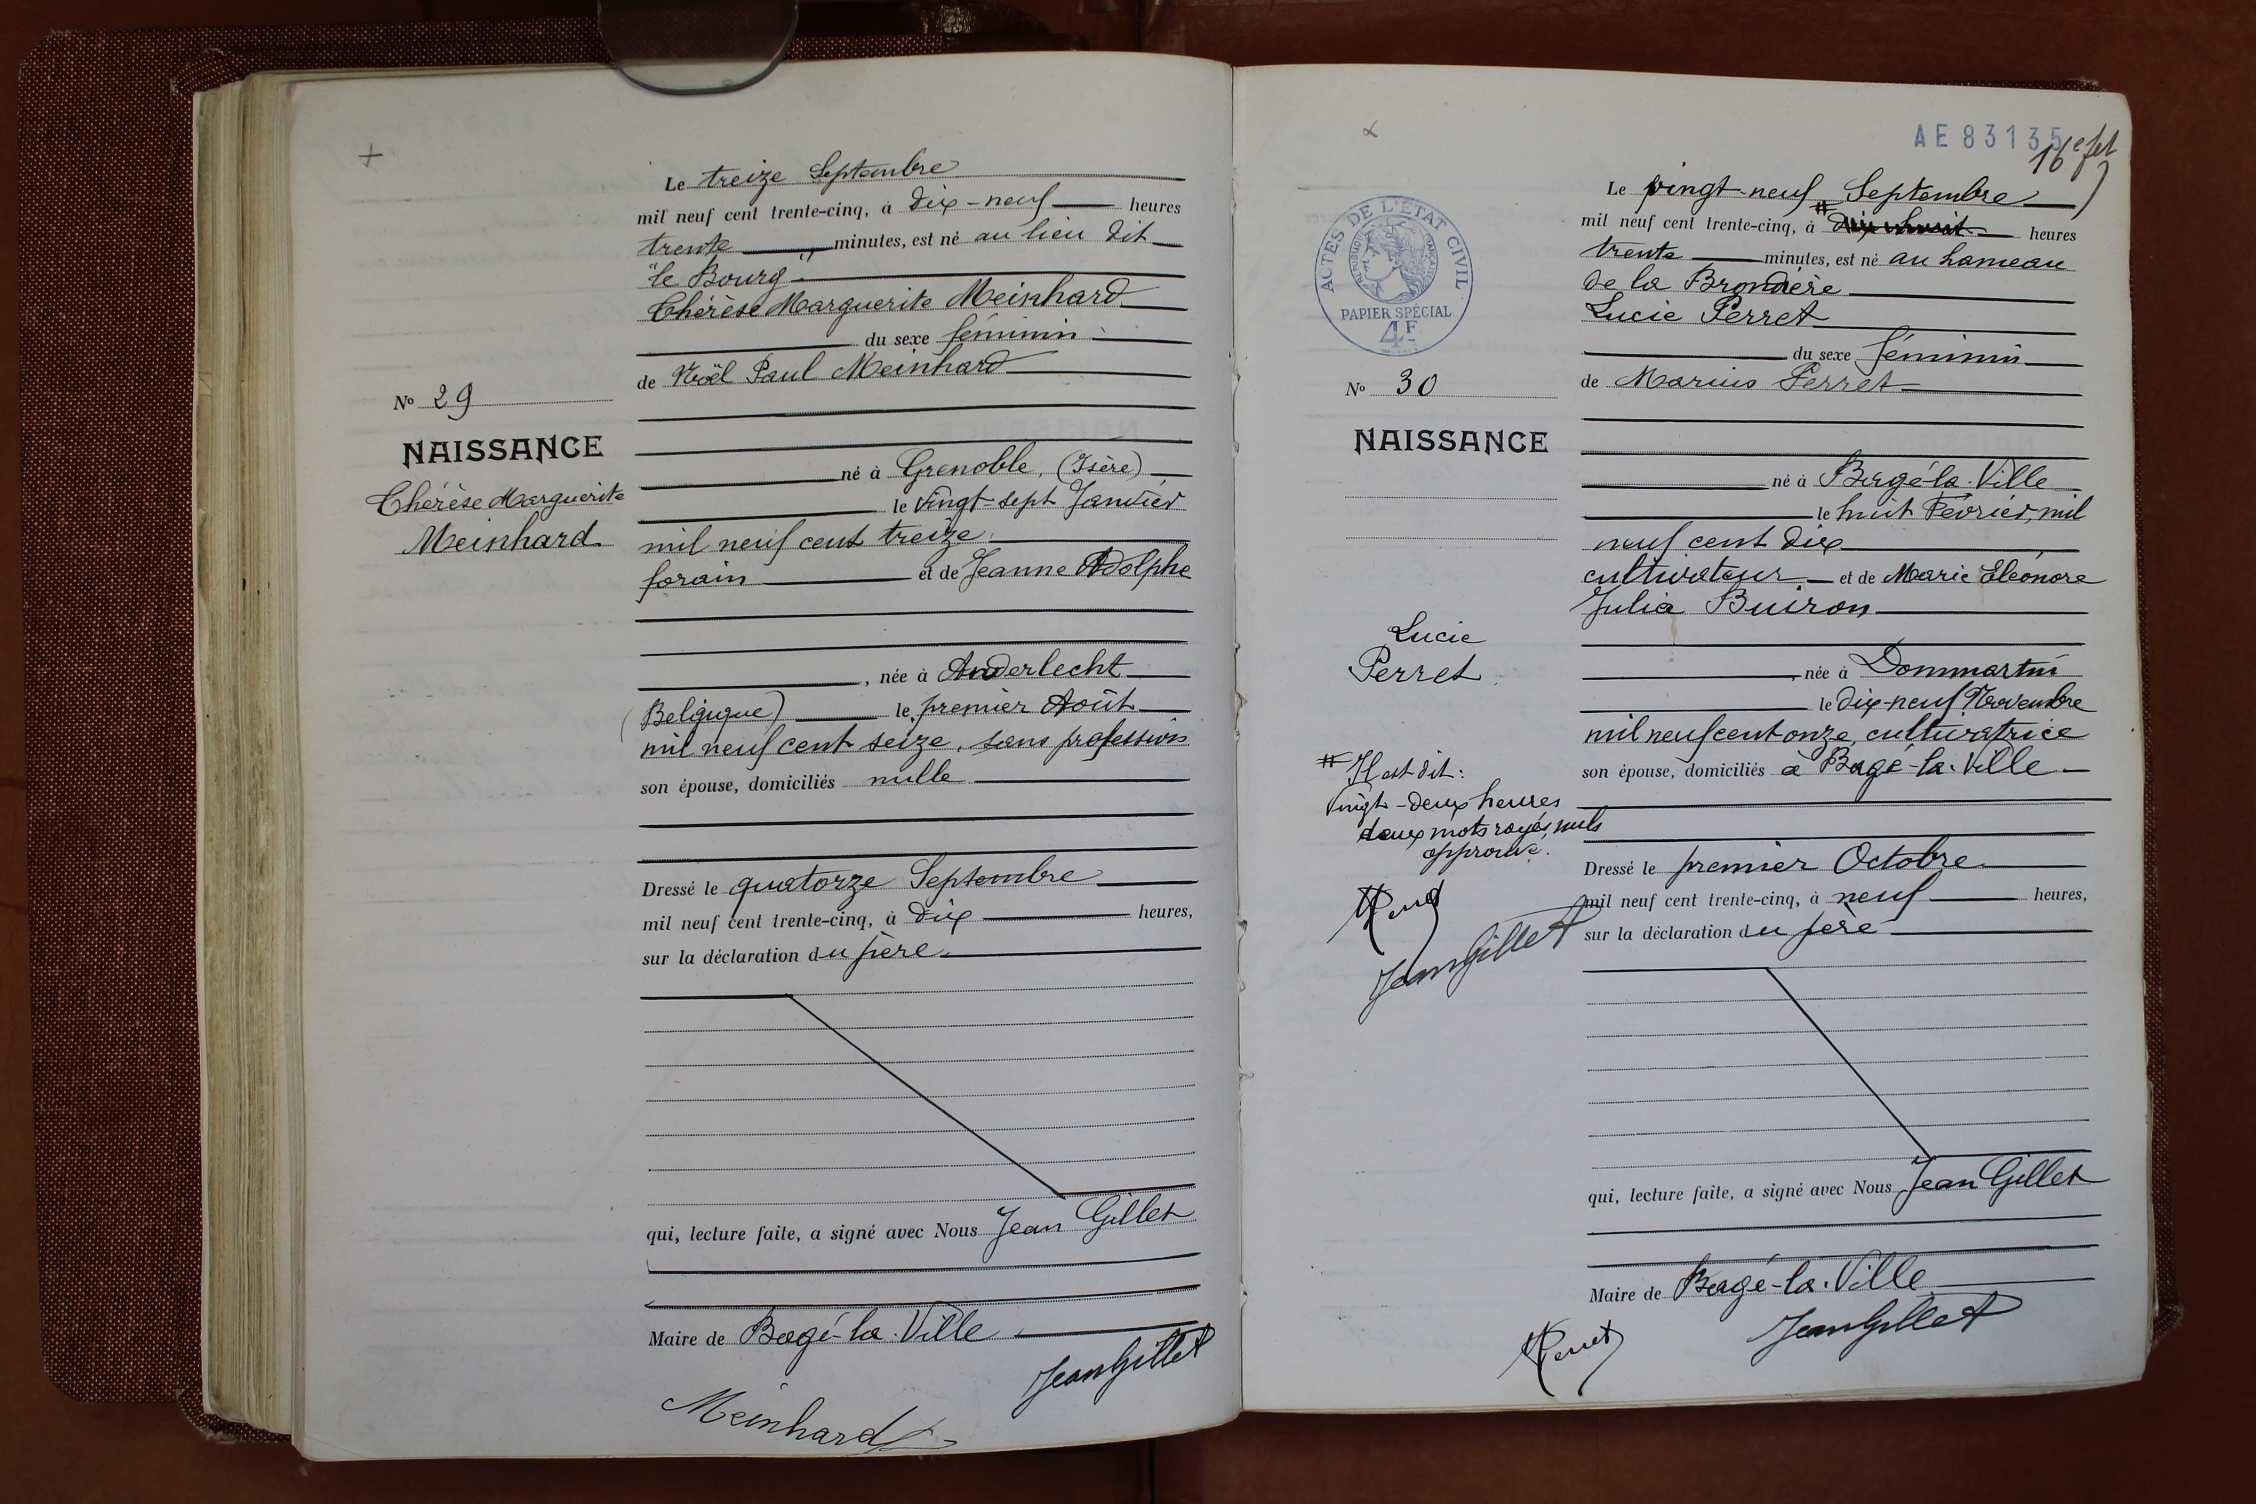 Le treize Septembre
mil neuf cent trente-cinq, à dix-neuf heures
trente minutes, est né au lieu dit
"le Bourg"
Thérèse Marguerite Meinhard
du sexe féminin
de Noël Paul Meinhard
No 29
NAISSANCE
Thérèse Marguerite
Meinhard
né à Grenoble, (Isère)
le vingt-sept Janvier
mil neuf cent treize
forain et de Jeanne Adolphe
, née à Anderlecht
(Belgique) le premier Août
mil neuf cent seize, sans profession
son épouse, domiciliés nulle
Dressé le quatorze Septembre
mil neuf cent trente-cinq, à dix heures,
sur la déclaration du père
qui, lecture faite, a signé avec Nous Jean Gillet
Maire de Bagé-la-Ville
Jean Gillet
Meinhard
AE 83135
16e fet
Le vingt-neuf Septembre
mil neuf cent trente-cinq, à # heures
trente minutes, est né au hameau
de la Brondière
Lucie Perret
du sexe féminin
de Marius Perret
ACTES DE L'ÉTAT CIVIL
PAPIER SPÉCIAL
4F
No 30
NAISSANCE
Lucie
Perret
né à Bagé-la-Ville
le huit Février, mil
neuf cent dix
cultivateur et de Marie Eléonore
Julia Buiron
, née à Dommartin
le dix-neuf Novembre
mil neuf cent onze, cultivatrice
son épouse, domiciliés à Bagé-la-Ville
# Il est dit:
vingt-deux heures
deux mots rayés nuls
approuvé.
Perret
Jean Gillet
Dressé le premier Octobre
mil neuf cent trente-cinq, à neuf heures,
sur la déclaration du père
qui, lecture faite, a signé avec Nous Jean Gillet
Maire de Bagé-la-Ville
Jean Gillet
Perret